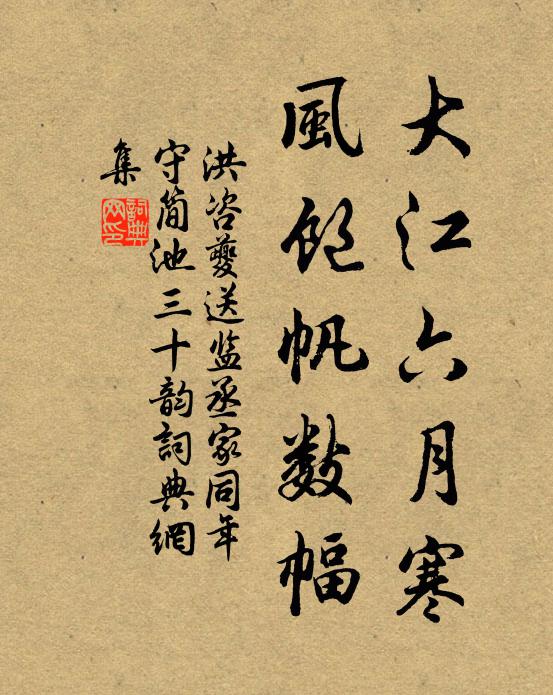 大江六月寒
風飽帆數幅
洪咨夔送監丞家同年
守简池三十韵詞典網
集
詞典網印